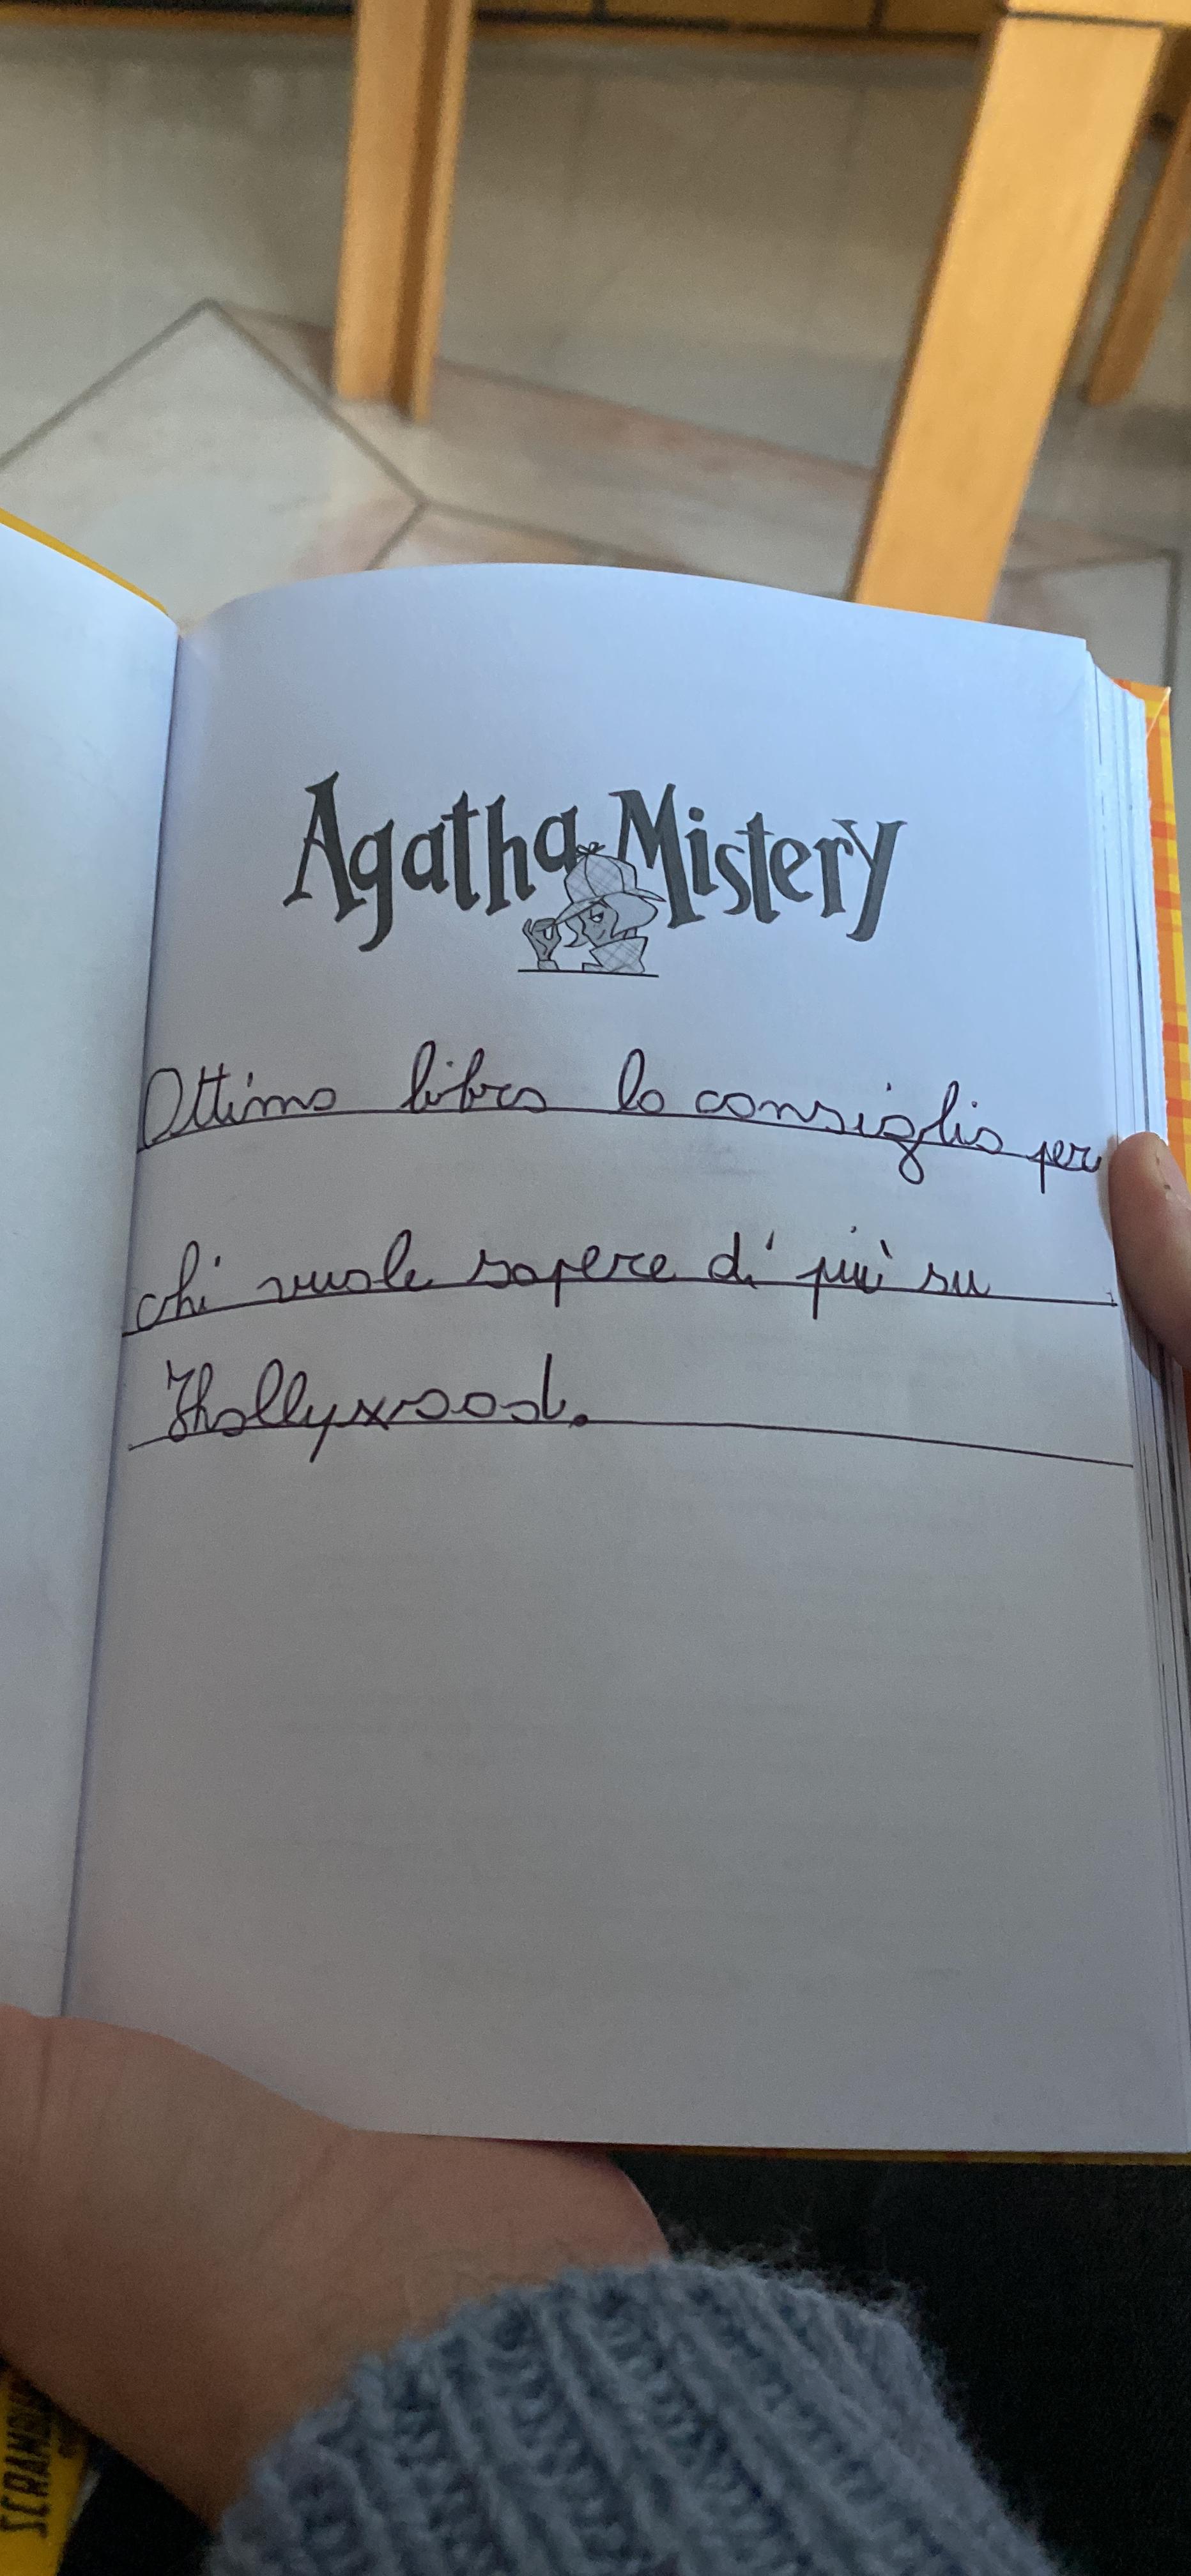 Agatha Mistery
Ottimo libro lo consiglio per
chi vuole sapere di più su
Hollywood.